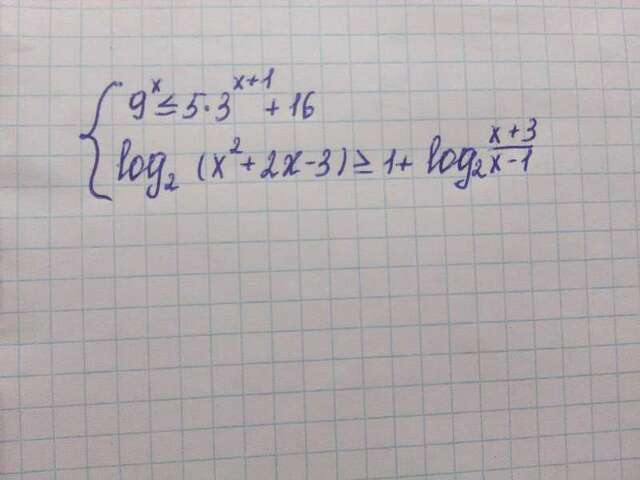 9^x ≤ 5·3^{x+1} + 16
log_2 (x^2 + 2x - 3) ≥ 1 + log_2 \frac{x+3}{x-1}